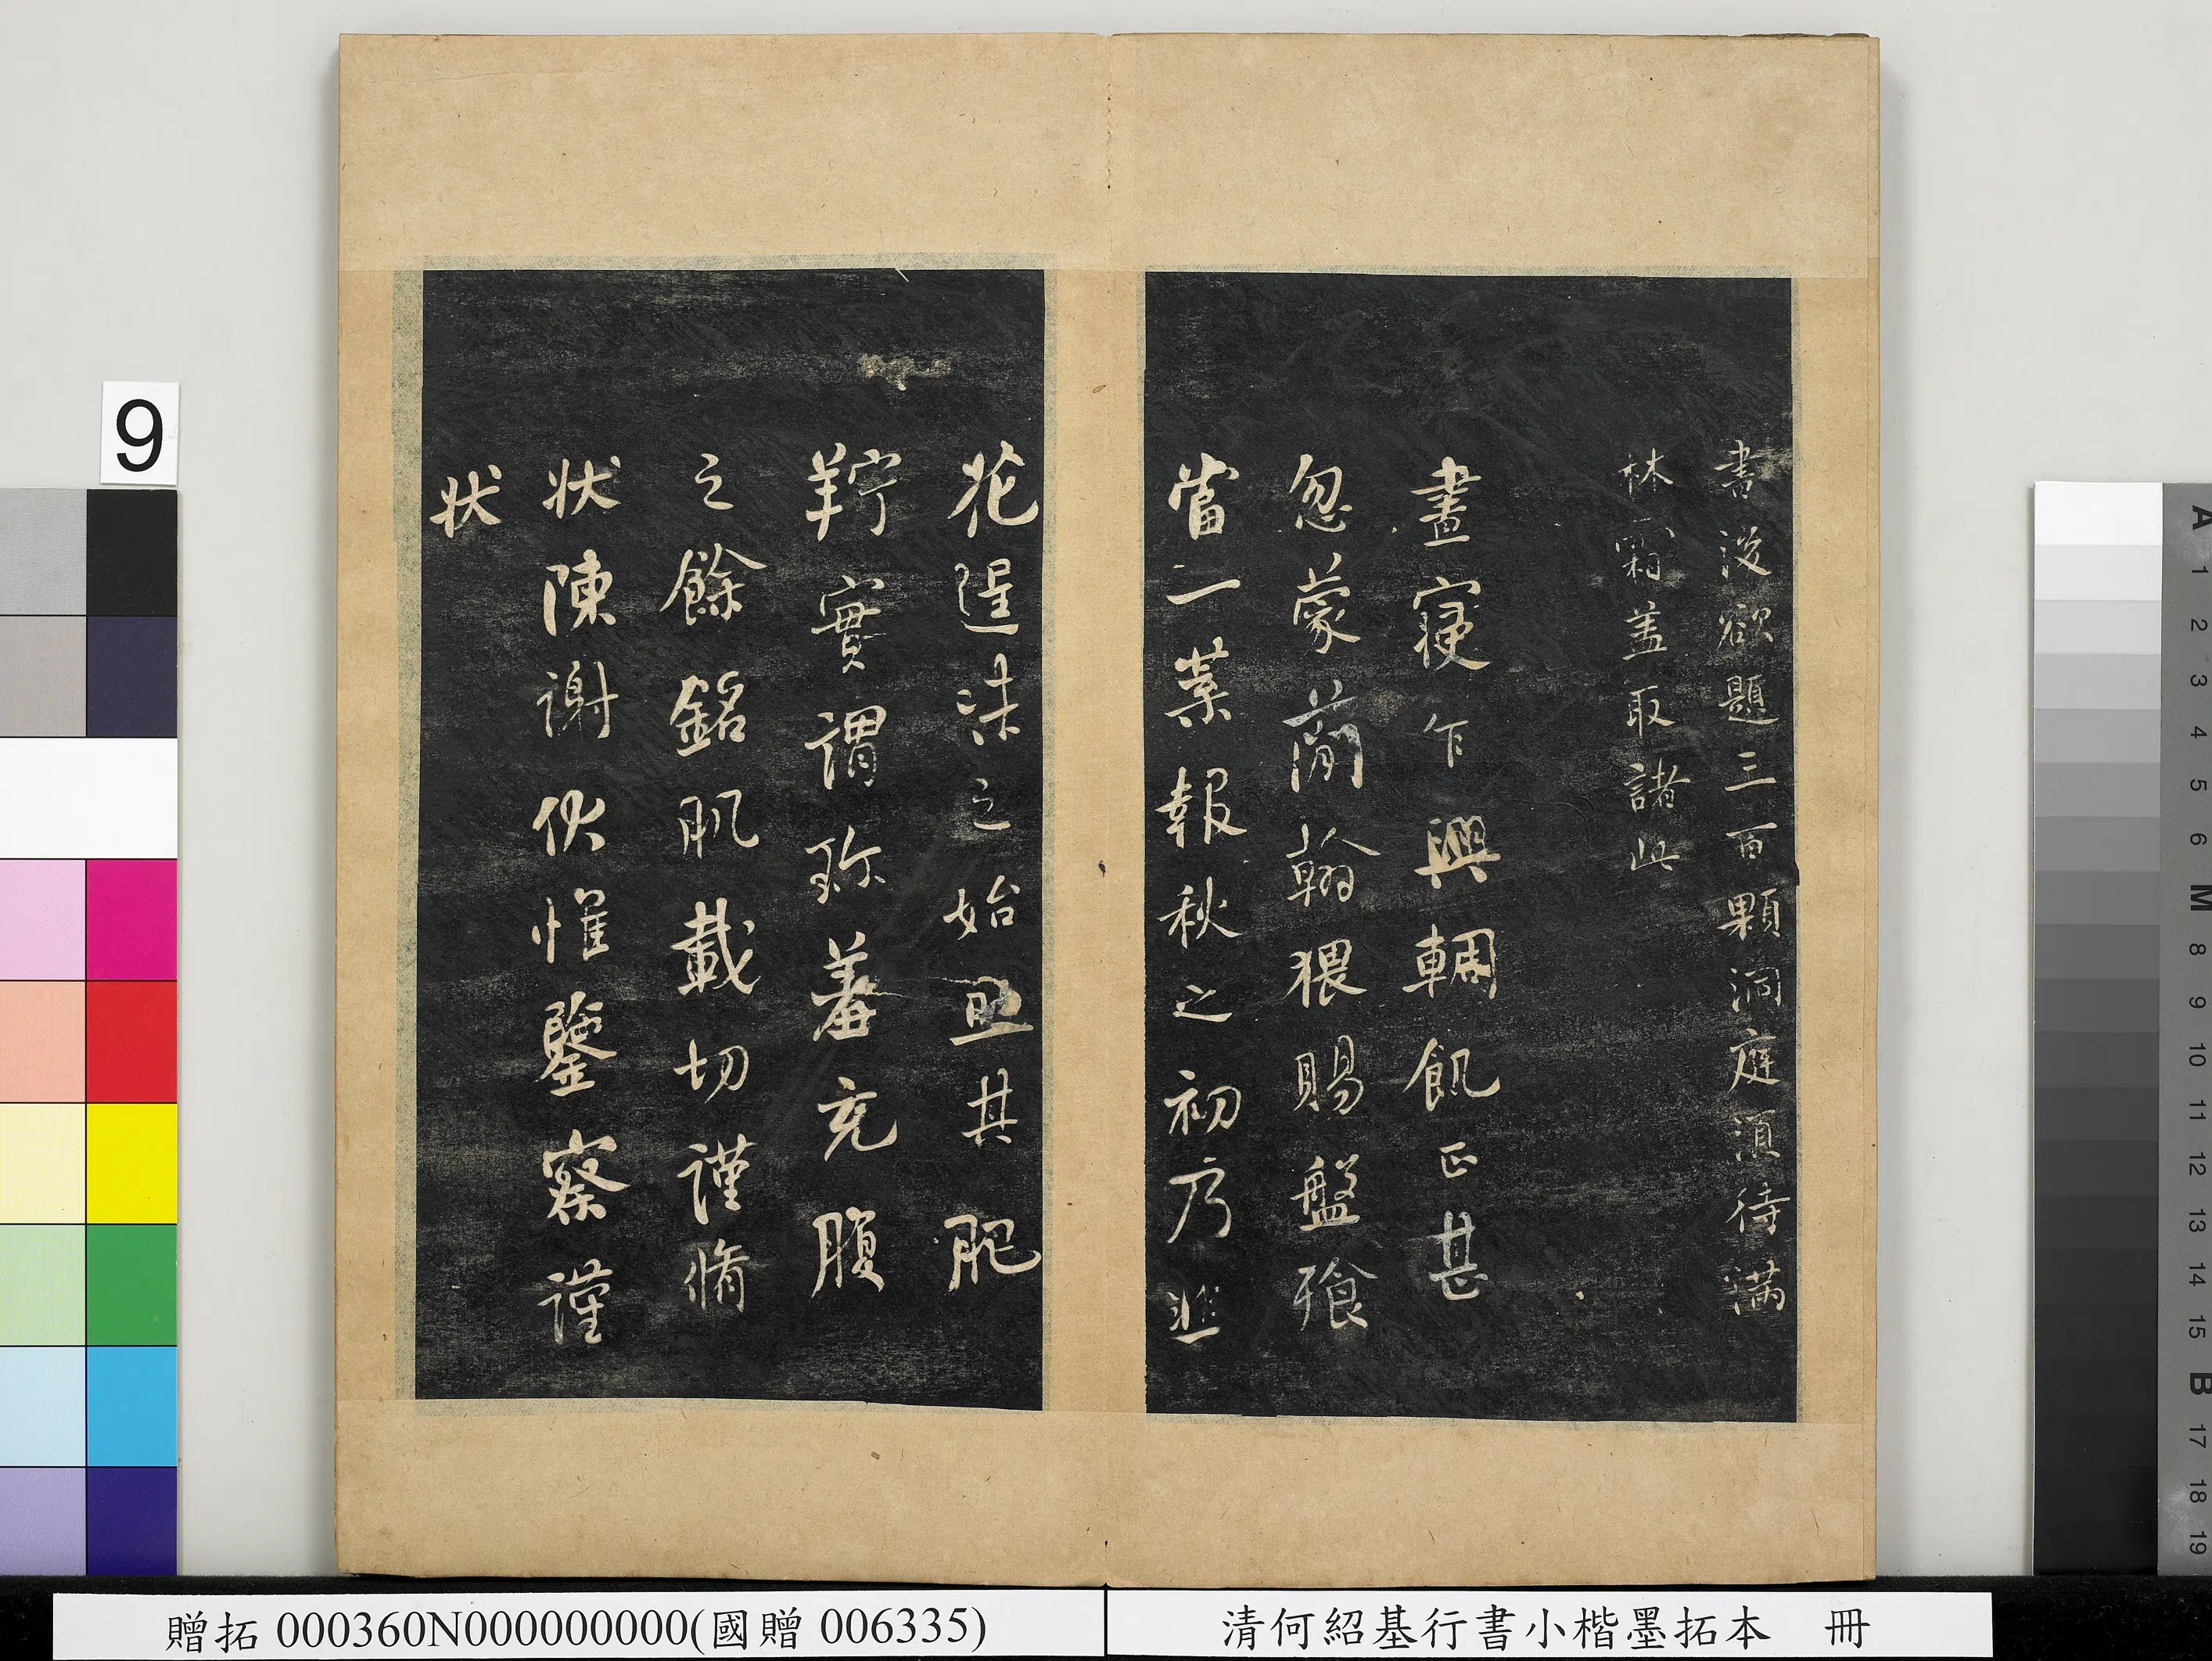 書後欲題三百顆洞庭須待滿
林霜蓋取諸此
晝寑乍興輖飢正甚
忽蒙簡翰猥賜盤飧
當一葉報秋之初乃韭
花逞味之始助其肥
羜實謂珍羞充腹
之餘銘肌載切謹脩
狀陳謝伏惟鑒察謹
狀
9
贈拓 000360N000000000(國贈 006335)
清何紹基行書小楷墨拓本 冊
A 1 2 3 4 5 6 M 8 9 10 11 12 13 14 15 B 17 18 19